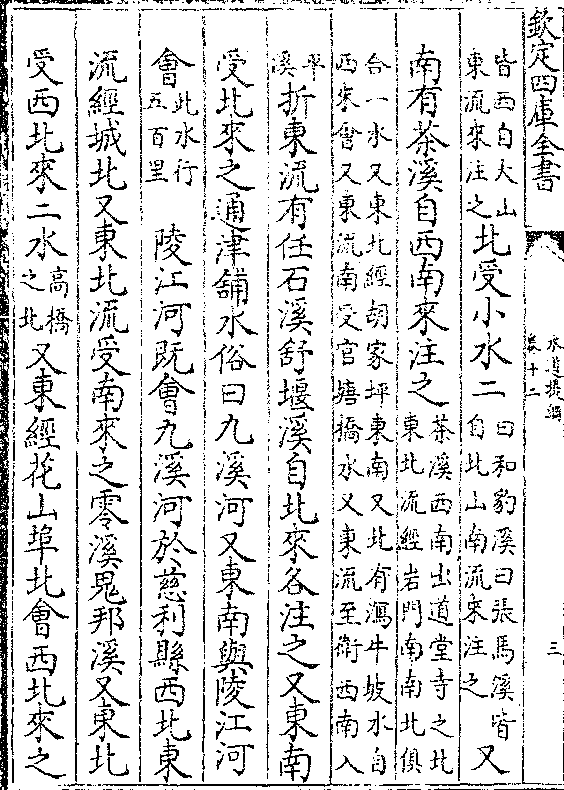 欽定四庫全書
水道提綱
卷十二
三
皆西自大山
東流來注之
北受小水二
曰和豹溪曰張馬溪皆
自北山南流來注之
又
南有茶溪自西南來注之
茶溪西南出道堂寺之北
東北流經岩門南南北俱
合一水又東北經胡家坪東南又北有瀉牛坡水自
西來會又東流南受官塘橋水又東流至衛西南入
平
溪
折東流有任石溪舒堰溪自北來各注之又東南
受北來之通津舖水俗曰九溪河又東南與陵江河
會
此水行
五百里
陵江河既會九溪河於慈利縣西北東
流經城北又東北流受南來之零溪鬼邦溪又東北
受西北來二水
高橋
之北
又東經花山埠北會西北來之